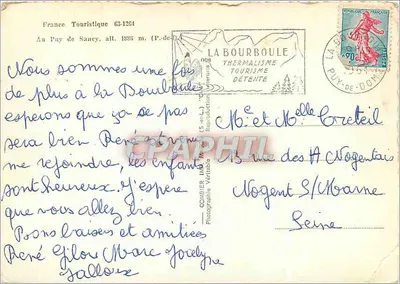 France Touristique 63-1264
Au Puy de Sancy, alt. 1886 m. (P.-de-D.)
LA BOURBOULE
THERMALISME
TOURISME
DETENTE
PUY-DE-DOME
CPAPHIL
Nous sommes une fois
de plus à la Bourboule
esperons que ça se pas
sera bien. René
me rejoindre, les enfants
sont heureux. J'espère
que vous allez bien.
Bons baisers et amitiées
René Gilou Marc Jocelyne
Jalloux
Me et Melle Creteil
13 rue des H Nogentais
Nogent S/Marne
Seine